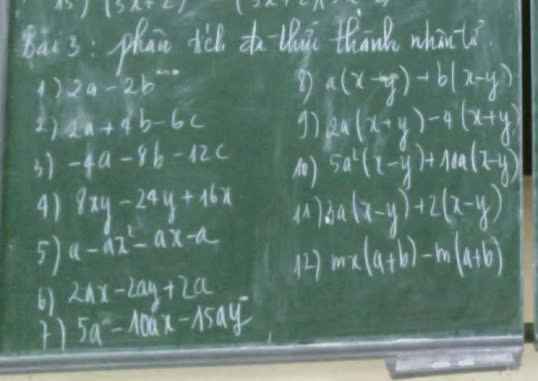 Bài 3: phân tích đa thức thành nhân tử
1) 2a - 2b
2) 2a + 4b - 6c
3) -4a - 8b - 12c
4) 8xy - 24y + 16x
5) a - ax² - ax - a
6) 2ax - 2ay + 2a
7) 5a - 10ax - 15ay
8) a(x-y) + b(x-y)
9) 2a(x+y) - 4(x+y)
10) 5a²(x-y) + 10a(x-y)
11) 3a(x-y) + 2(x-y)
12) mx(a+b) - m(a+b)